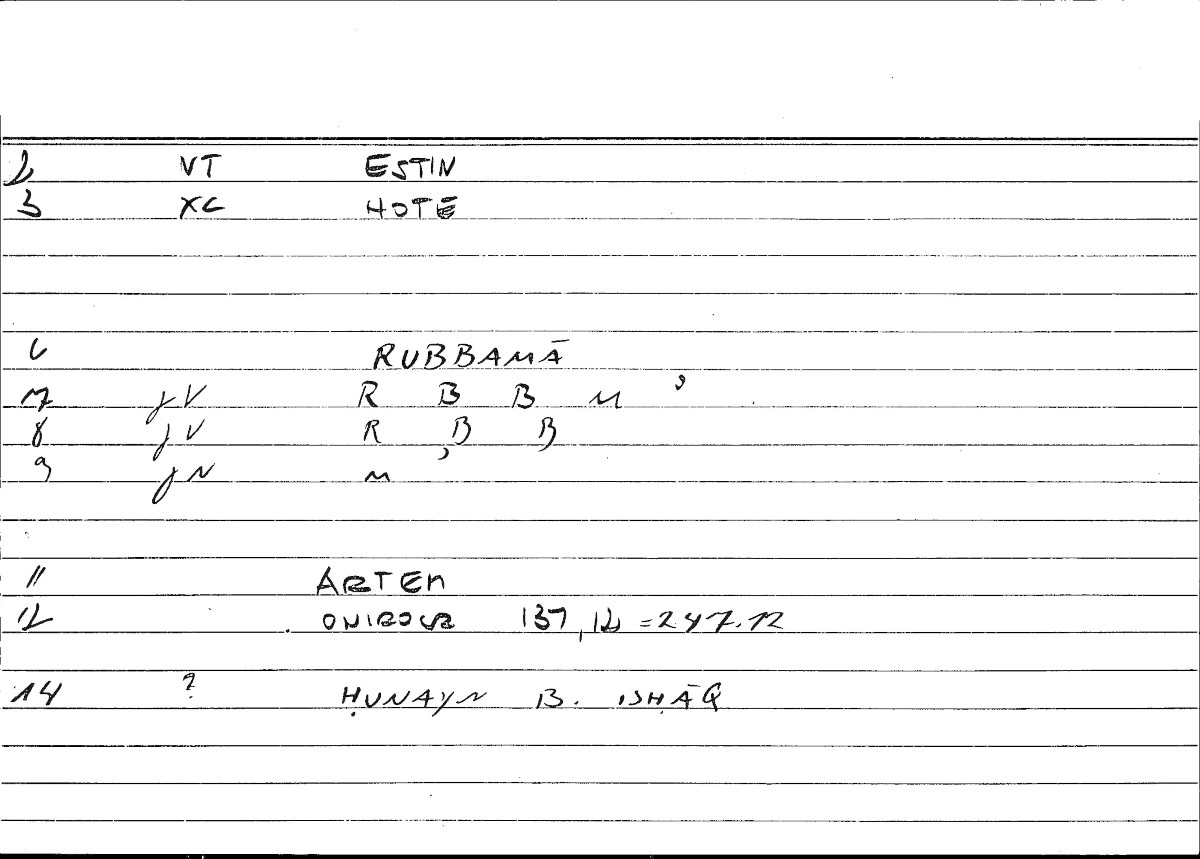 2 VT ESTIN
3 XC HOTE
6 RUBBAMĀ
7 JV R B B M ʾ
8 JV R B B
9 JN M ʾ
11 ARTEM
12 ONIROCR 137,12 =247.12
14 ? ḤUNAYN B. ISḤĀQ